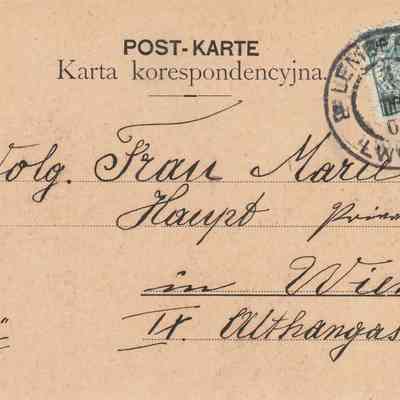 POST-KARTE
Karta korespondencyjna.
LEMBERG
LWÓW
Wolg. Frau Marie
Haupt
in Wien
IX. Althangas